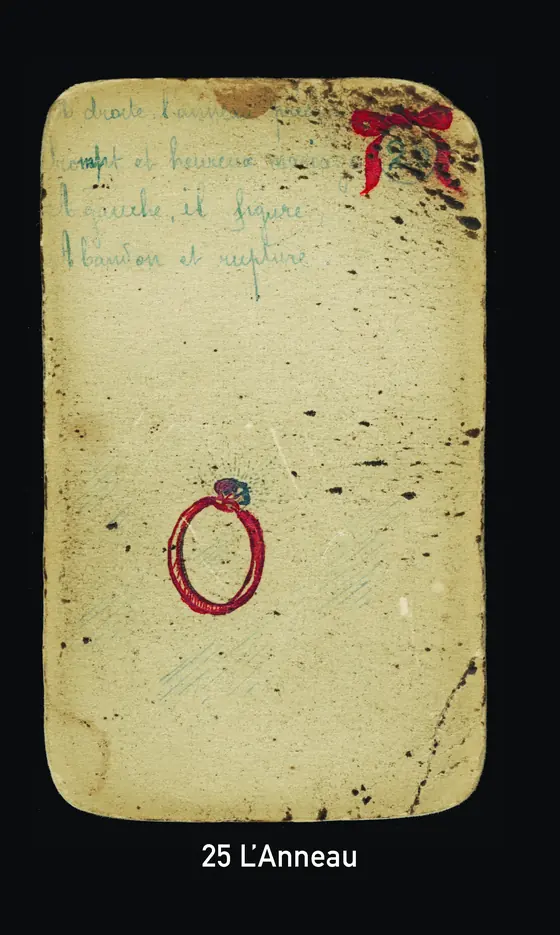 A droite, l'anneau
prompt et heureux mariage
A gauche, il figure
Abandon et rupture.
25 L'Anneau